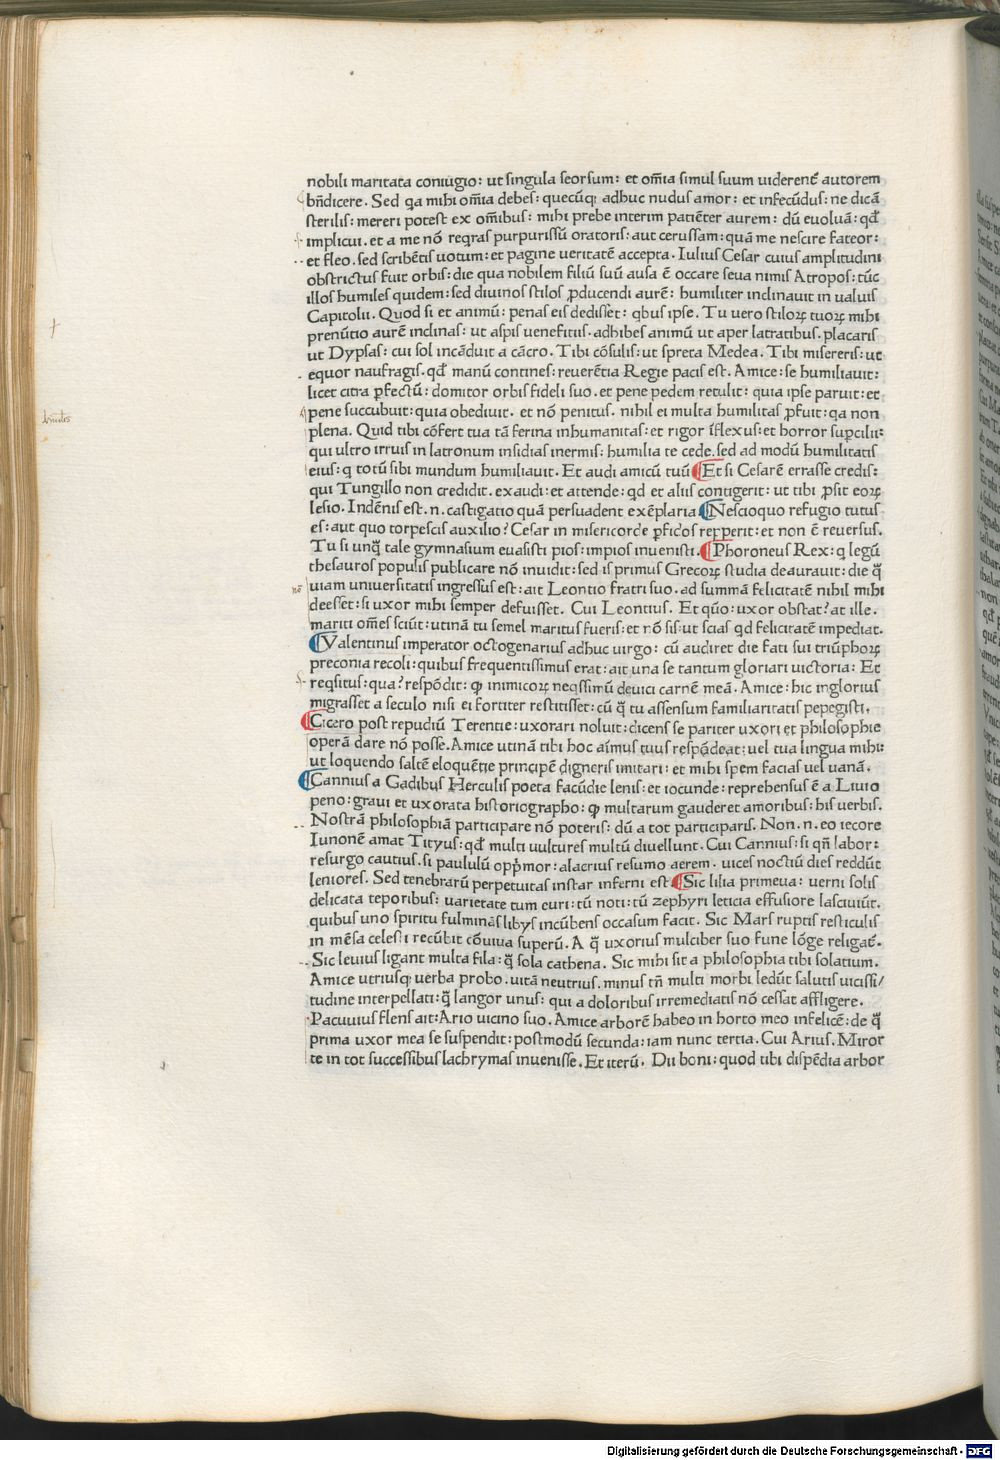 nobili maritata coniugio: ut singula seorsum: et oīa simul suum uiderent̄ autorem
bn̄dicere. Sed qa mihi om̄ia debes: quecūq; adhuc nudus amor: et infecūdus: ne dicā
sterilis: mereri potest ex om̄ibus: mihi prebe interim patiēter aurem: dū euoluā: qd̄
implicui. et a me nō reqras purpurissū oratoris: aut cerussam: quā me nescire fateor:
et fleo. sed scribētis uotum: et pagine ueritatē accepta. Iulius Cesar cuius amplitudini
obstrictus fuit orbis: die qua nobilem filiū suū ausa ē occare seua nimis Atropos: tūc
illos humiles quidem: sed diuinos stilos ꝓducendi aurē: humiliter inclinauit in ualuis
Capitolii. Quod si et animū: penas eis dedisset: qbus ipse. Tu uero stiloꝝ tuoꝝ mihi
prenūtio aurē inclinas: ut aspis ueneficus. adhibes animū ut aper latratibus. placaris
ut Dypsas: cui sol incāduit a cācro. Tibi cōsulis: ut spreta Medea. Tibi misereris: ut
equor naufragis. qd̄ manū contines: reuerētia Regie pacis est. Amice: se humiliauit:
licet citra ꝑfectū: domitor orbis fideli suo. et pene pedem retulit: quia ipse paruit: et
pene succubuit: quia obediuit. et nō penitus. nihil ei multa humilitas ꝓfuit: qa non
plena. Quid tibi cōfert tua tā ferina inhumanitas: et rigor īflexus: et horror suꝑcilii:
qui ultro irruis in latronum insidias inermis: humilia te cede. sed ad modū humilitatis
eius: q totū sibi mundum humiliauit. Et audi amicū tuū Et si Cesarē errasse credis:
qui Tungillo non credidit. exaudi: et attende: qd et aliis contigerit: ut tibi ꝓsit eoꝝ
lesio. Indēnis est. n. castigatio quā persuadent exēplaria Nescioquo refugio tutus
es: aut quo torpescis auxilio? Cesar in misericorde ꝑfidos repperit: et non ē reuersus.
Tu si unꝗ̄ tale gymnasium euasisti pios: impios inuenisti. Phoroneus Rex: q legū
thesauros populis publicare nō inuidit: sed is primus Grecoꝝ studia deaurauit: die q̄
uiam uniuersitatis ingressus est: ait Leontio fratri suo. ad summā felicitatē nihil mihi
deesset: si uxor mihi semper defuisset. Cui Leontius. Et qūo: uxor obstat? at ille.
mariti om̄es sciūt: utinā tu semel maritus fueris: et nō sis: ut scias qd felicitatē impediat.
Valentinus imperator octogenarius adhuc uirgo: cū audiret die fati sui triūphoꝝ
preconia recoli: quibus frequentissimus erat: ait una se tantum gloriari uictoria: Et
reqsitus: qua? respōdit: ꝙ inimicoꝝ neqssimū deuici carnē meā. Amice: hic inglorius
migrasset a seculo nisi ei fortiter restitisset: cū q̄ tu assensum familiaritatis pepegisti.
Cicero post repudiū Terentie: uxorari noluit: dicens se pariter uxori et philosophie
operā dare nō posse. Amice utinā tibi hoc aīmus tuus respōdeat: uel tua lingua mihi:
ut loquendo saltē eloquētie principē digneris imitari: et mihi spem facias uel uanā.
Cannius a Gadibus Herculis poeta facūdie lenis: et iocunde: reprehensus ē a Liuio
peno: graui et uxorata historiographo: ꝙ multarum gauderet amoribus: his uerbis.
Nostrā philosophiā participare nō poteris: dū a tot participaris. Non. n. eo iecore
Iunonē amat Tityus: qd̄ multi uultures multū diuellunt. Cui Cannius: si qn̄ labor:
resurgo cautius. si paululū opp̄mor: alacrius resumo aerem. uices noctiū dies reddūt
leniores. Sed tenebrarū perpetuitas instar inferni est. Sic lilia primeua: uerni solis
delicata teporibus: uarietate tum euri: tū noti: tū zephyri leticia effusiore lasciuiūt.
quibus uno spiritu fulminās libys incūbens occasum facit. Sic Mars ruptis resticulis
in mēsa celesti recūbit cōuiua superū. A q̄ uxorius mulciber suo fune lōge religat̄.
Sic leuius ligant multa fila: q̄ sola cathena. Sic mihi sit a philosophia tibi solatium.
Amice utriusq; uerba probo. uitā neutrius. minus tn̄ multi morbi ledūt salutis uicissi/
tudine interpellati: q̄ langor unus: qui a doloribus irremediatis nō cessat affligere.
Pacuuius flens ait: Ario uicino suo. Amice arborē habeo in horto meo infelicē: de q̄
prima uxor mea se suspendit: postmodū secunda: iam nunc tertia. Cui Arius. Miror
te in tot successibus lachrymas inuenisse. Et iterū. Dii boni: quod tibi dispēdia arbor
Digitalisierung gefördert durch die Deutsche Forschungsgemeinschaft - DFG